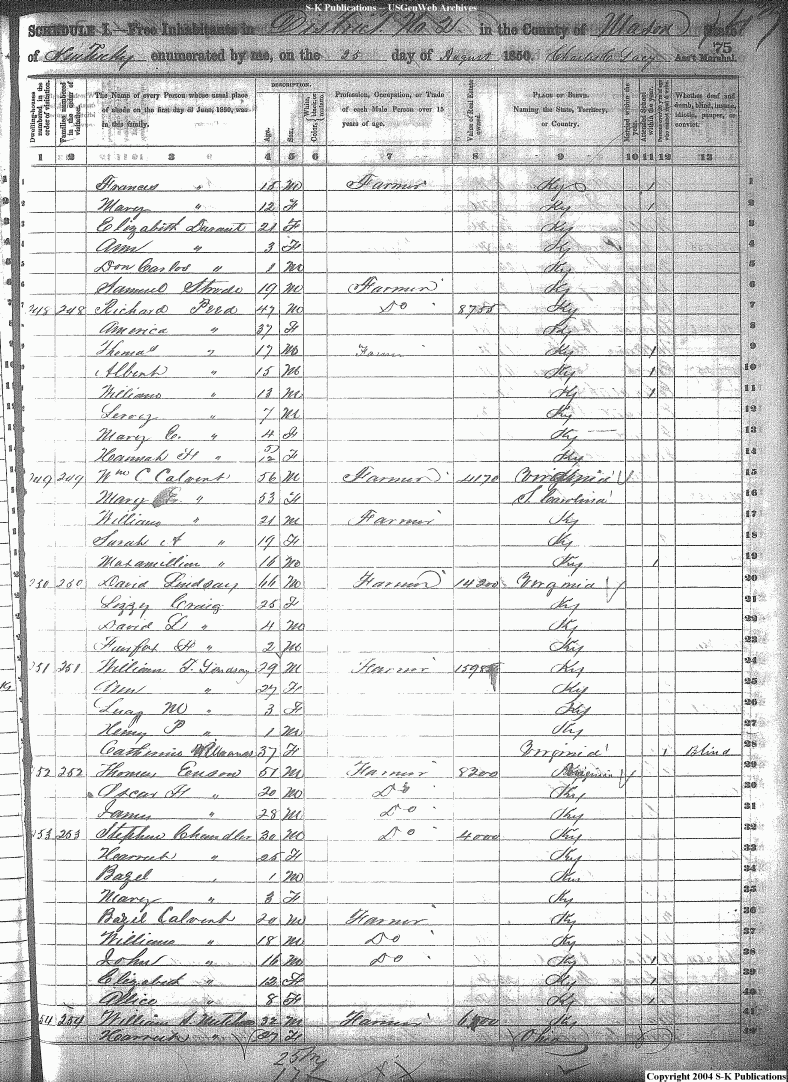 S-K Publications -- USGenWeb Archives
SCHEDULE I.—Free Inhabitants in District No. 2 in the County of Mason State
of Kentucky enumerated by me, on the 25 day of August 1850. Ass't Marshal.
75
Dwelling-houses numbered in the order of visitation.
Families numbered in the order of visitation.
The Name of every Person whose usual place of abode on the first day of June, 1850, was in this family.
DESCRIPTION.
Age.
Sex.
White, black, or mulatto.
Color,
Profession, Occupation, or Trade of each Male Person over 15 years of age.
Value of Real Estate owned.
PLACE OF BIRTH. Naming the State, Territory, or Country.
Married within the year.
Attended School within the year.
Whether deaf and dumb, blind, insane, idiotic, pauper, or convict.
1 2 3 4 5 6 7 8 9 10 11 12 13
1 Frances " 15 M Farmer Ky 1 1
2 Mary " 12 F Ky 1 2
3 Elizabeth Durant 21 F Ky 3
4 Ann " 3 F Ky 4
5 Don Carlos " 1 M Ky 5
6 Samuel Strode 19 M Farmer Ky 6
7 248 248 Richard 47 M Do Ky 7
8 America " 37 F Ky 8
9 Thomas " 17 M Farmer Ky 1 9
10 Albert " 15 M Ky 1 10
11 William " 13 M Ky 1 11
12 Leroy " 7 M Ky 12
13 Mary E. " 4 F Ky 13
14 Hannah H " F Ky 14
15 249 249 Wm C Calvert 56 M Farmer 4170 Virginia 15
16 Mary " 53 F S. Carolina 16
17 William " 21 M Farmer Ky 17
18 Sarah A " 19 F Ky 18
19 Maxamillian " 16 M Ky 1 19
20 250 250 David Lindsay 66 M Farmer 14200 Virginia 20
21 Lizzy Craig 25 F Ky 21
22 David L " 4 M Ky 22
23 H " 2 M Ky 23
24 251 251 William T. Lindsay 29 M Farmer Ky 24
25 Ann " 27 F Ky 25
26 Lucy M " 3 F Ky 26
27 Henry P " 1 M Ky 27
28 Catherine 37 F Virginia 1 Blind 28
29 252 252 Thomas 51 M Farmer 8200 Virginia 29
30 Oscar H " 20 M Do Ky 30
31 James " 28 M Do Ky 31
32 253 253 Stephen Chandler 30 M Do 4000 Ky 32
33 Harriett " 25 F Ky 33
34 Bazel " 1 M Ky 34
35 Mary " 3 F Ky 35
36 Bazil Calvert 20 M Farmer Ky 36
37 William " 18 M Do Ky 37
38 John " 16 M Do Ky 1 38
39 Elizabeth " 12 F Ky 1 39
40 Alice " 8 F Ky 1 40
41 254 254 William S. 32 M Farmer Ky 41
42 Harriett " 27 F Ohio 42
Copyright 2004 S-K Publications